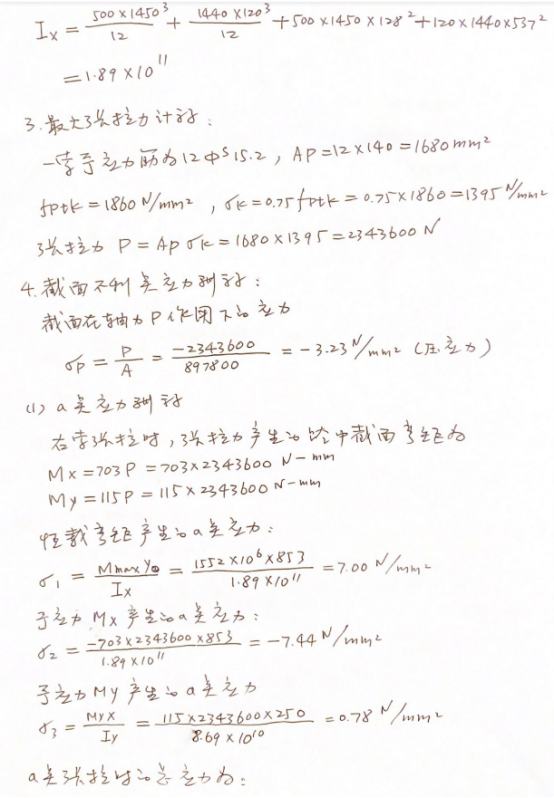 Ix = 500×1450³/12 + 1440×120³/12 + 500×1450×128² + 120×1440×537²
=1.89×10¹¹
3.最大张拉力计算:
一束予应力筋为12Φˢ15.2, AP=12×140=1680mm²
fptk=1860N/mm², σk=0.75fptk=0.75×1860=1395N/mm²
张拉力 P=Apσk=1680×1395=2343600N
4.截面不利点应力计算:
截面在轴力P作用下的应力
σp = P/A = -2343600/897800 = -3.23N/mm² (压应力)
(1) a点应力计算
右束张拉时,张拉力产生的跨中截面弯矩为
Mx=703P=703×2343600 N-mm
My=115P=115×2343600 N-mm
恒载弯矩产生的a点应力:
σ1 = Mmax y/Ix = 1552×10⁶×853/1.89×10¹¹ = 7.00 N/mm²
予应力Mx产生的a点应力:
σ2 = -703×2343600×853/1.89×10¹¹ = -7.44 N/mm²
予应力My产生的a点应力
σ3 = MyX/Iy = 115×2343600×250/8.69×10¹⁰ = 0.78 N/mm²
a点张拉时的总应力为: